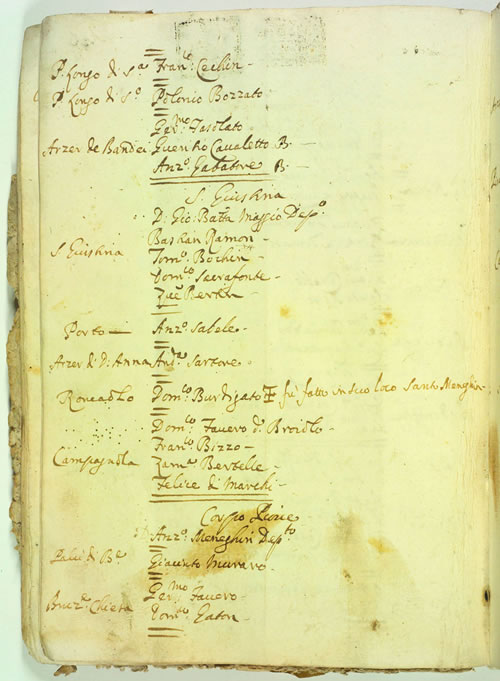 P. Longo di S.a Fran.co Cechin.
P. Longo di S.o Polonio Bozzato
Ger.mo Fasolato
Arzer de Bandei Guerino Cavaletto B.
Anz.o Gabatore B.
S. Giustina
D. Gio: Batta Maggio Dep.o
Bastian Ramon -
S. Giustina Tom.o Bochin -
Dom.co Serafonte -
Zuc. Berten -
Porto - Anz.o Sabele -
Arzer di D. Anna And.a Sartore -
Roncaglo Dom.co Burdigato fu fatto in suo loco Santo Menghin.
Dom.co Favero d. Broidlo.
Fran.co Bizzo -
Campagnola Zam.a Bertelle -
Felice di Marchi -
Corpo Pieve
Anz.o Meneghin Dep.to
Giacinto Muraro.
Ger.mo Favero -
Chieta Dom.co Gaton -